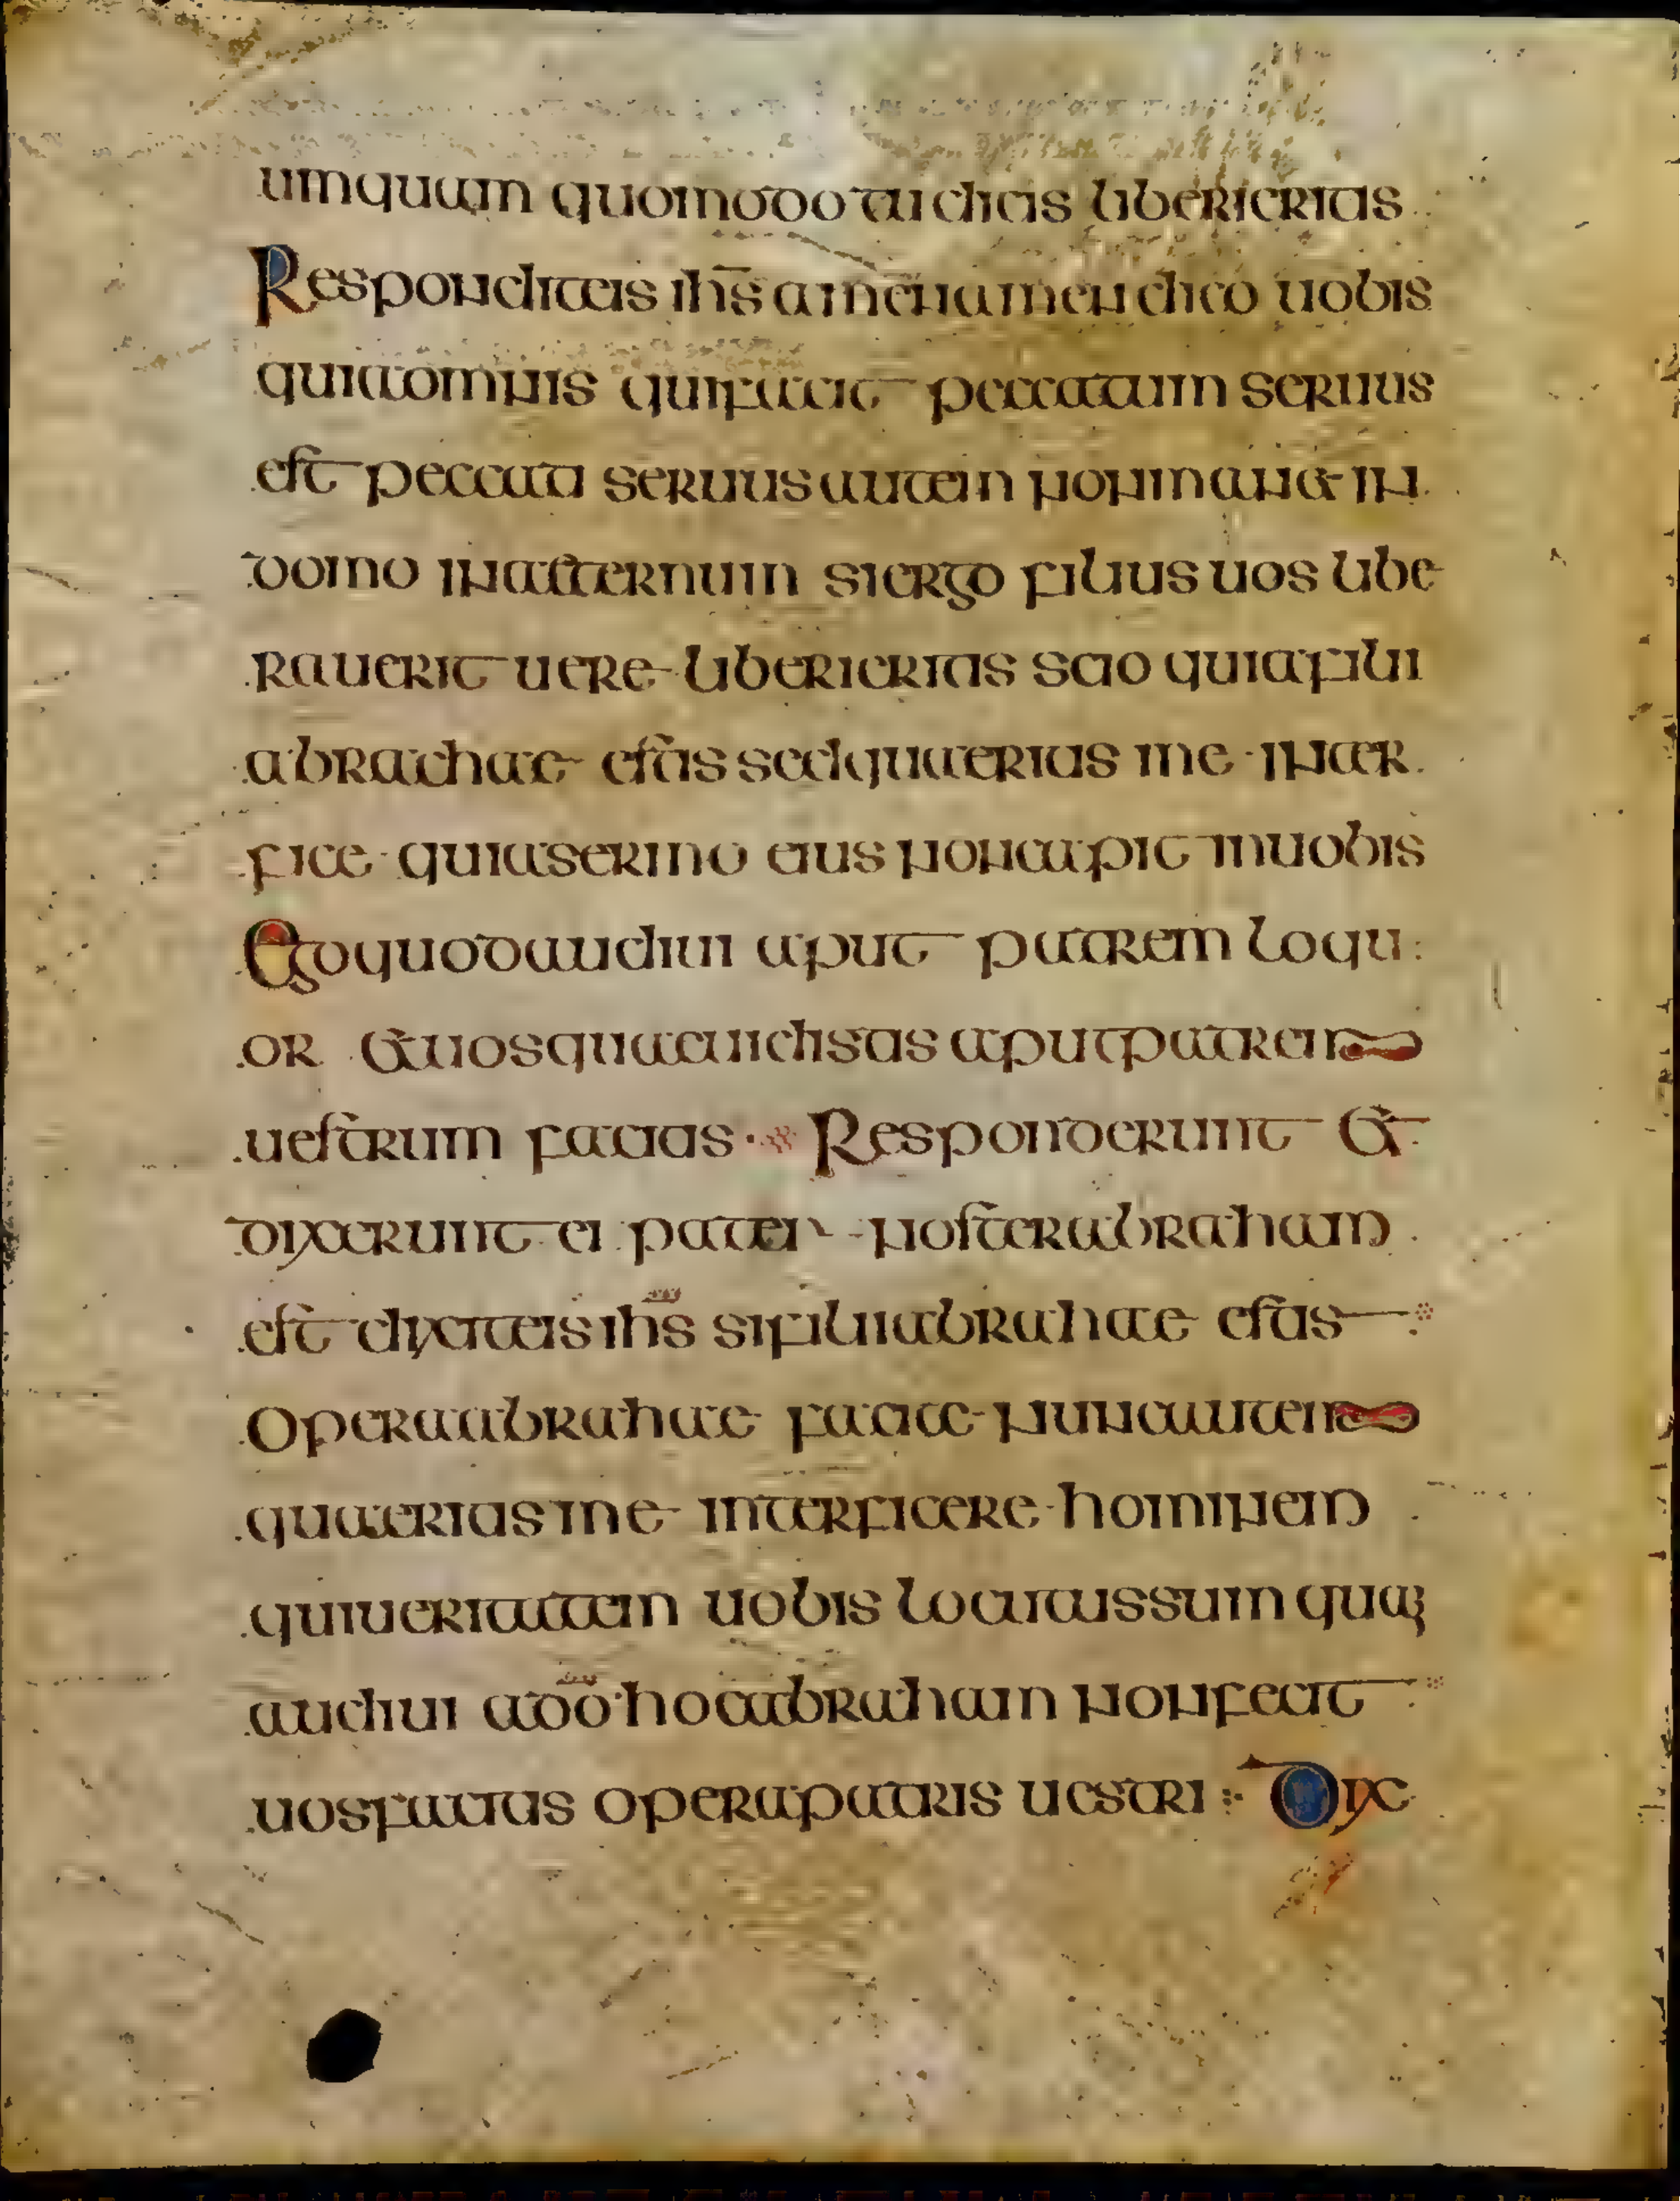 umquam quomodo tu dicis liberi eritis
Respondit eis ihs̄ amen amen dico uobis
quia omnis qui facit peccatum seruus
est peccati seruus autem non manet in
domo in aeternum si ergo filius uos libe
rauerit uere liberi eritis scio quia filii
abrachae estis sed quaeritis me inter
fice quia sermo eius non capit in uobis
Ego quod audiui aput patrem loqu
or et uos quae uidistis aput patrem
uestrum facitis Responderunt et
dixerunt ei pater noster abraham
est dixit eis ihs̄ si filii abrahae estis
opera abrahae facite nunc autem
quaeritis me interficere hominem
qui ueritatem uobis locutus sum quam
audiui a dō hoc abraham non fecit
uos facitis opera patris uestri Dixe